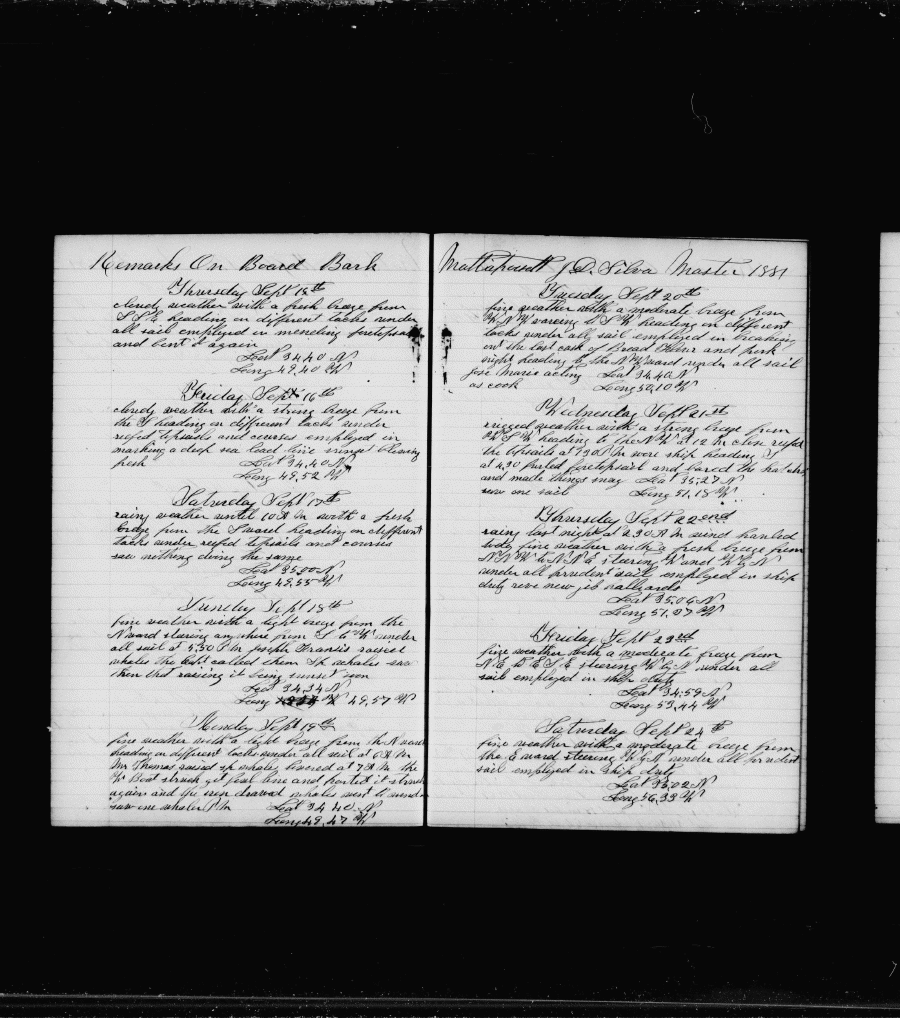 Remarks On Board Bark
Thursday Sept 15th
cloudy weather with a fresh breze from
S S E heading on different tacks under
all sail employed in mending foretopsail
and bent it again
Lat 34,40 N
Long 49,40 W
Friday Sept 16th
cloudy weather with a strong breze from
the S heading on different tacks under
reefd topsails and courses employed in
marking a deep sea lead line wind blowing
fresh
Lat 34,40 N
Long 49,52 W
Saturday Sept 17th
rainy weather until 10 A M with a fresh
breze from the S ward heading on different
tacks under reefd topsails and courses
saw nothing doing the same
Lat 35,00 N
Long 49,55 W
Sunday Sept 18th
fine weather with a light breze from the
N ward stearing anywhere from S to W under
all sail at 5,30 P M Joseph Francis raised
whales the capt called them Sp whales saw
them but raising it being sunset soon
Lat 34,34 N
Long 49,57 W
Monday Sept 19th
fine weather with a light breze from the N ward
heading on different tacks under all sail at 6 A M
Mr Thomas raised sp whales lowered at 7 A M the
W Boat struck got foul line and parted it struck
again and the iron drawed whales went to windward
saw one whaler P M Lat 34 40 N
Long 49,47 W
Mattapoisett J D. Silva Master 1881
Tuesday Sept 20th
fine weather with a moderate breze from
W N W varing to S W heading on different
tacks under all sail employed in breaking
out the last cask of Bread Flour and pork
night heading to the N W ward under all sail
Jose Mario acting Lat 34,40 N
as cook Long 50,10 W
Wednesday Sept 21st
rugged weather with a strong breze from
W S W heading to the N W at 12 M close reefd
the topsails at 1 30 P M wore ship heading S
at 4,30 furled foretopsail and bared the hatches
and made things snug Lat 35,27 N
saw one sail Long 51,18 W
Thursday Sept 22end
rainy last night at 2 30 A M wind hauled
tody fine weather with a fresh breze from
N N W to N N E stearing W and W by N
under all prudent sail employed in ship
duty reve new jib halliards
Lat 35,06 N
Long 51,07 W
Friday Sept 23rd
fine weather with a moderate breze from
N E to E S E stearing W by N under all
sail employed in ship duty
Lat 34,59 N
Long 53,44 W
Saturday Sept 24th
fine weather with a moderate breze from
the E ward stearing W by N under all prudent
sail employed in ship duty
Lat 35,02 N
Long 56,33 W